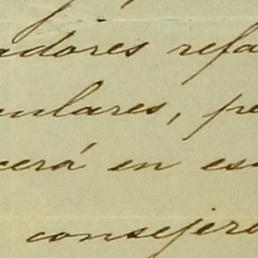 adores refa
culares, pe
cerá en es
consejero